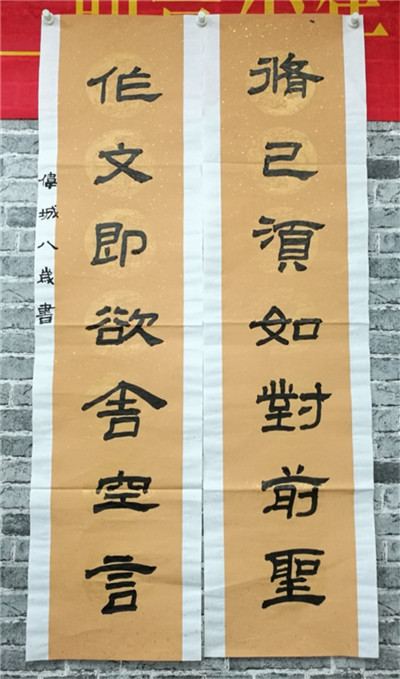 脩己須如對前聖
作文即欲舎空言
偉城八歲書